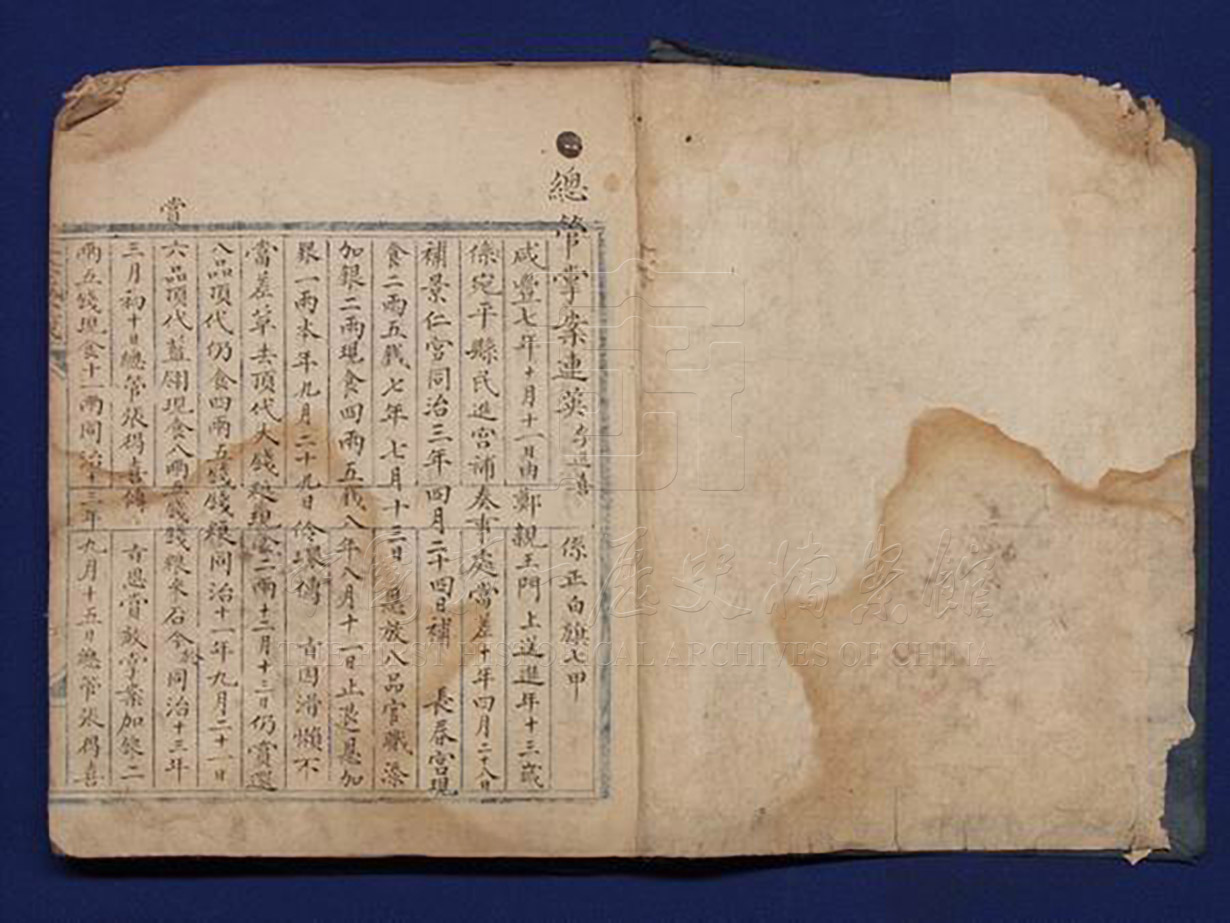 總管掌案連英 李進喜 係正白旗七甲
咸豐七年十月十一日由鄭親王門上送進年十三歲
係宛平縣民進宮補奏事處當差十年四月二十八日
補景仁宮同治三年四月二十四日補 長春宮現
食二兩五錢七年七月十三日 恩放八品官職添
加銀二兩現食四兩五錢八年八月十一日止退恩加
銀一兩本年九月二十九日伶環傳 旨因滑懶不
當差草去頂代大錢粮現食二兩十二月十三日仍賞還
八品頂代仍食四兩五錢錢粮同治十一年九月二十一日
賞
六品頂代藍翎現食八兩五錢錢粮米石今 同治十三年
三月初十日總管張得喜傳 旨恩賞放掌案加銀二
兩五錢現食十一兩同治十三年九月十五日總管張得喜
中國第一歷史檔案館
THE FIRST HISTORICAL ARCHIVES OF CHINA